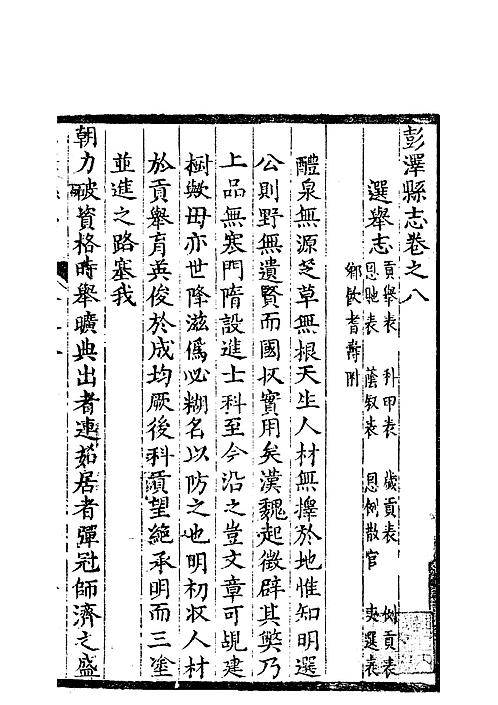 彭澤縣志卷之八
選舉志 貢舉表 科甲表 歲貢表 例貢表
恩貤表 蔭敘表 恩例散官 吏選表
鄉飲耆壽附
醴泉無源芝草無根天生人材無擇於地惟知明選
公則野無遺賢而國收實用矣漢魏起徵辟其獘乃
上品無寒門隋設進士科至今沿之豈文章可覘建
樹歟毋亦世降滋僞必糊名以防之也明初收人材
於貢舉育英俊於成均厥後科貢望絶承明而三塗
並進之路塞我
朝力破資格時舉曠典出者連茹居者彈冠師濟之盛